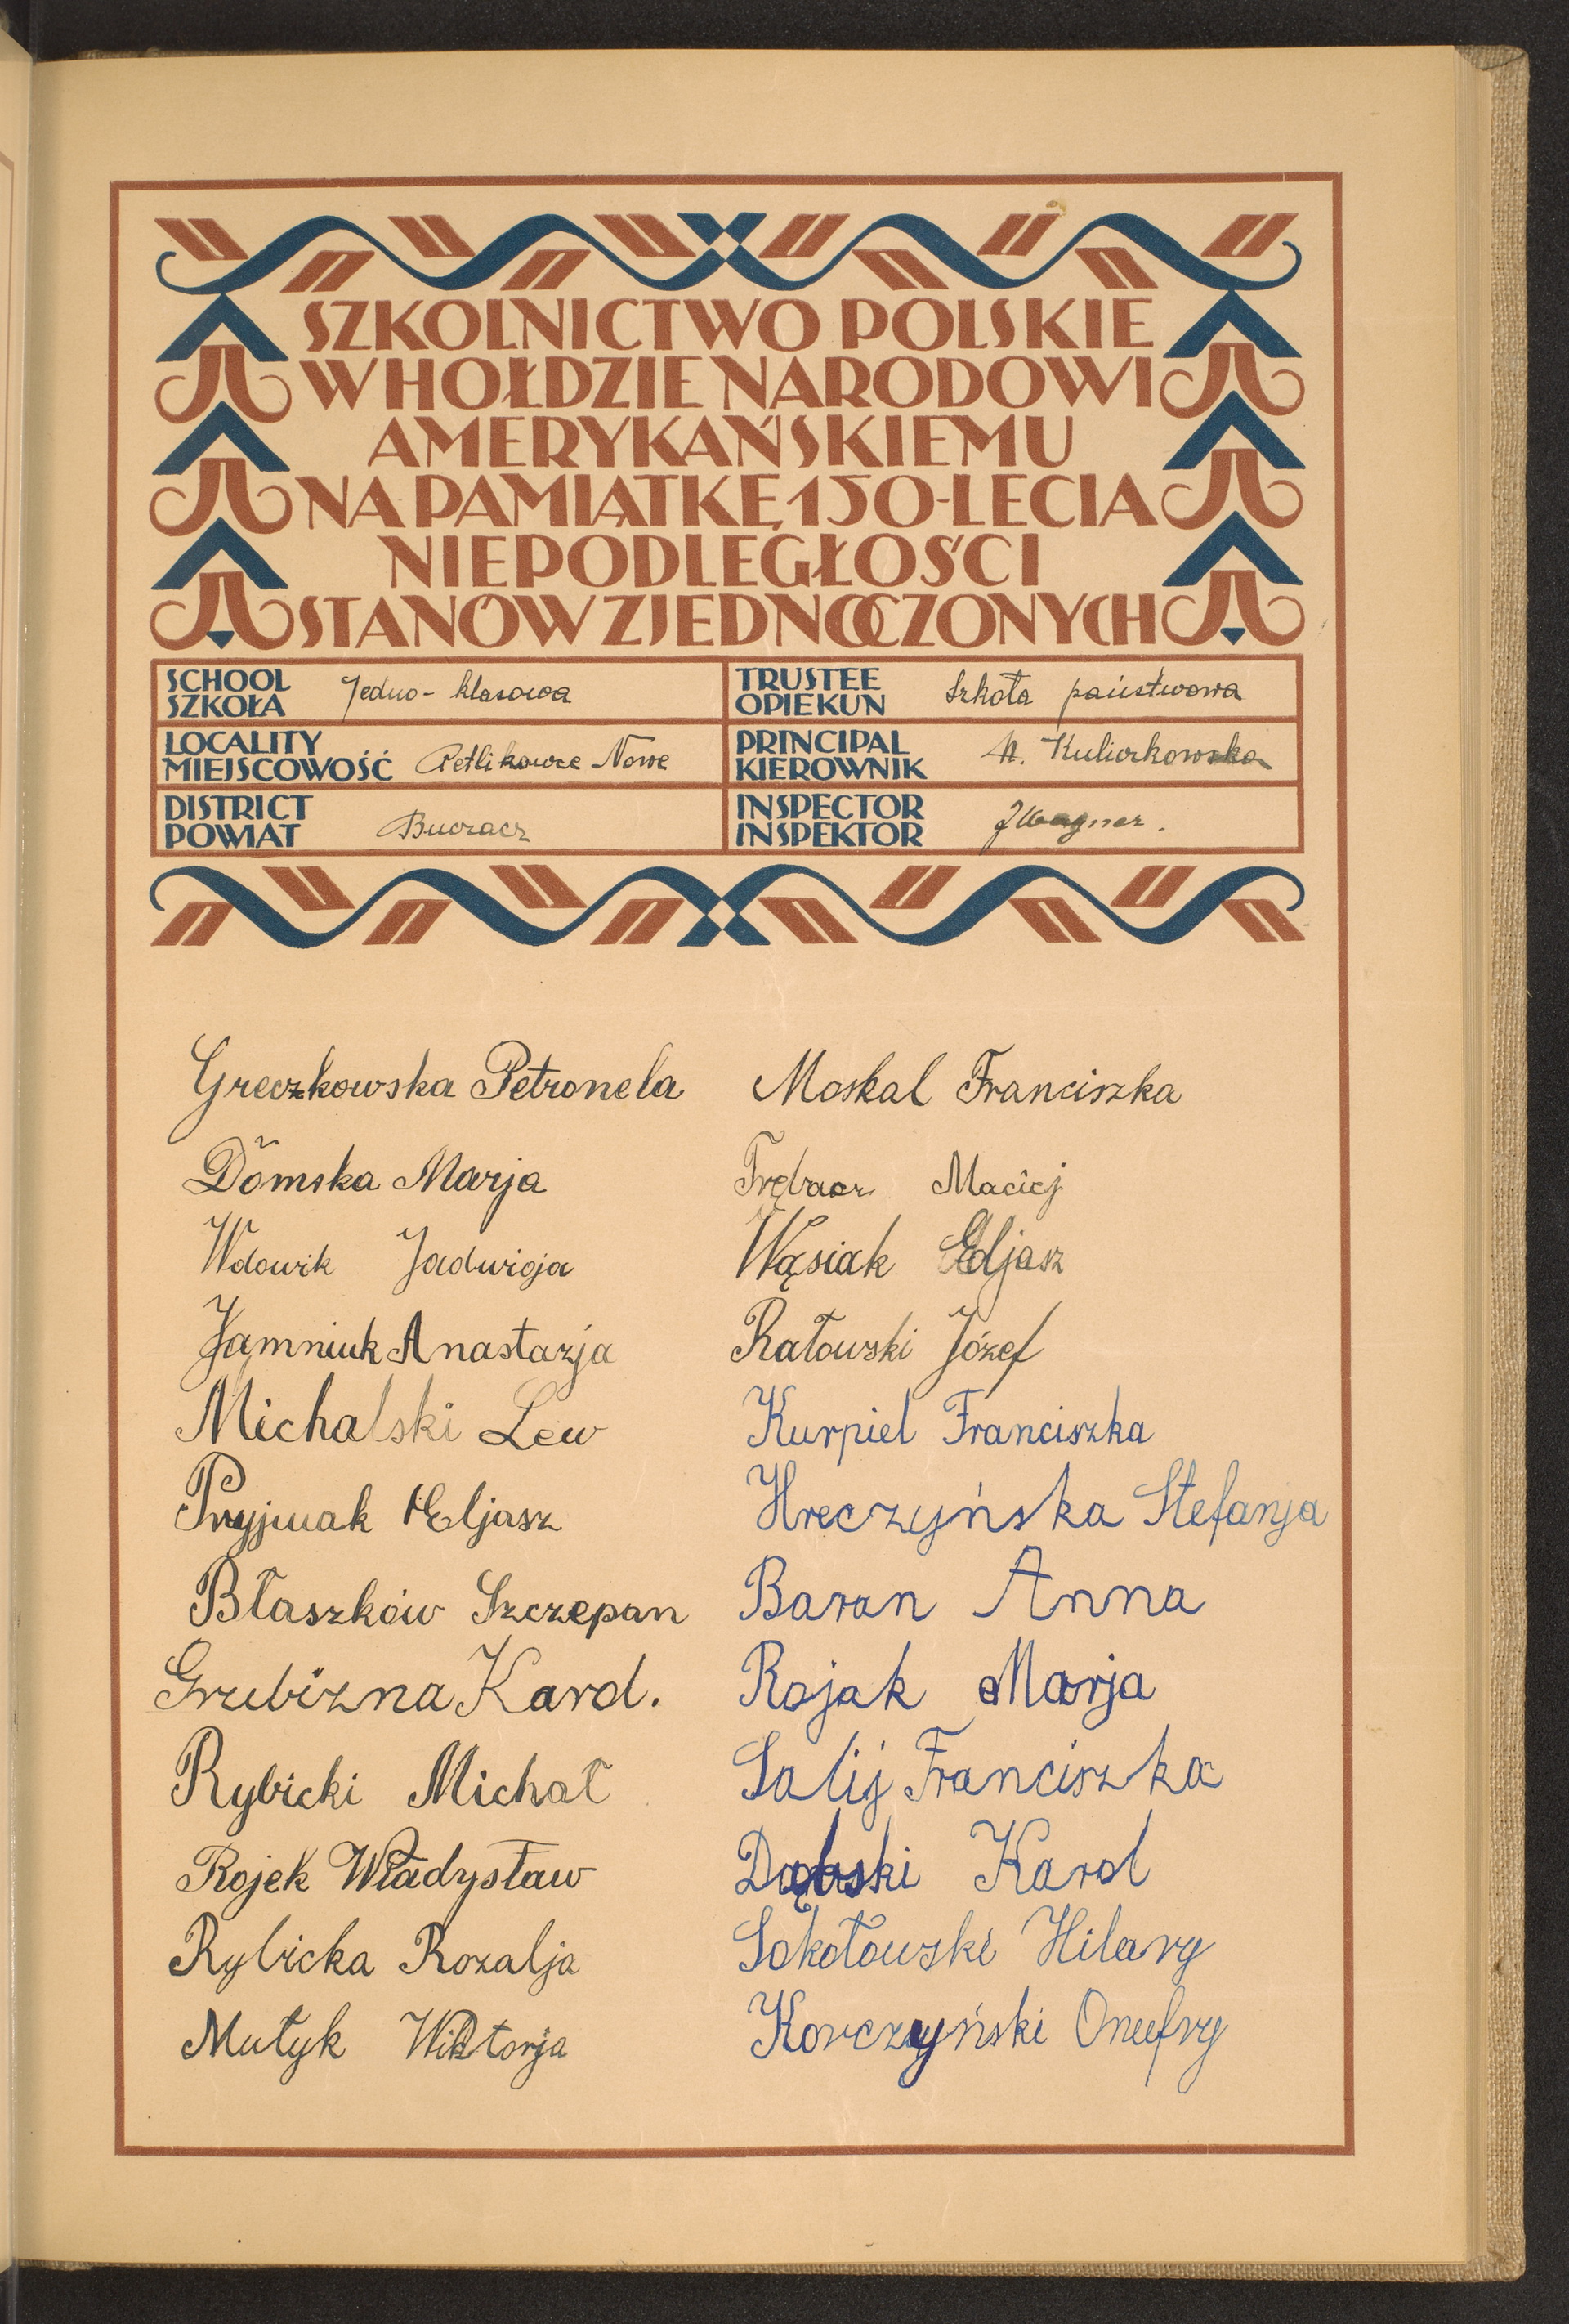 SZKOLNICTWO POLSKIE
W HOŁDZIE NARODOWI
AMERYKAŃSKIEMU
NA PAMIĄTKĘ 150-LECIA
NIEPODLEGŁOŚCI
STANÓW ZJEDNOCZONYCH
SCHOOL
SZKOŁA
Jedno-klasowa
TRUSTEE
OPIEKUN
Szkoła państwowa
LOCALITY
MIEJSCOWOŚĆ
Petlikowce Nowe
PRINCIPAL
KIEROWNIK
DISTRICT
POWIAT
Buczacz
INSPECTOR
INSPEKTOR
JWagner.
Greczkowska Petronela
Domska Marja
Wdowik Jadwiga
Jamniuk Anastazja
Michalski Lew
Pryjmak Eljasz
Błaszków Szczepan
Grubizna Karol.
Rybicki Michał
Rojek Władysław
Rybicka Rozalja
Mutyk Wiktorja
Moskal Franciszka
Trębacz Maciej
Wąsiak Eljasz
Ratowski Józef
Kurpiel Franciszka
Hreczyńska Stefanja
Baran Anna
Rojak Marja
Salij Franciszka
Dąbski Karol
Sokołowski Hilary
Korczyński Onufry